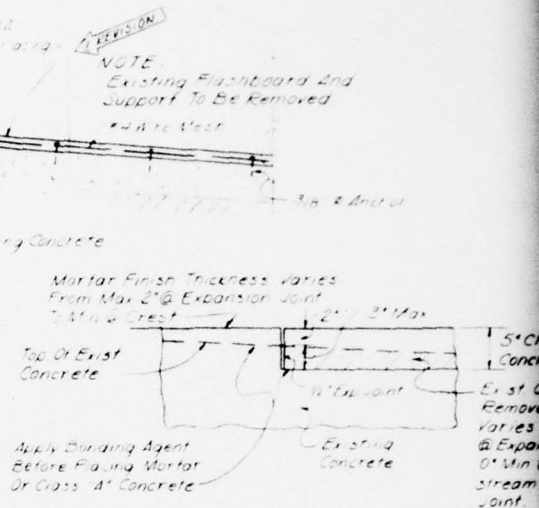 REVISION
NOTE
Existing Flashboard And
Support To Be Removed
#4 Wire Mesh
3/8" ø Anchor
ng Concrete
Mortar Finish Thickness Varies
From Max 2" @ Expansion Joint
To Min @ Crest
2"
3" Max
Top Of Exist
Concrete
½" Exp Joint
5" Cl
Concr
Exist. C
Remove
Varies
@ Expan
0" Min
stream
Joint.
Existing
Concrete
Apply Bonding Agent
Before Placing Mortar
Or Class "A" Concrete